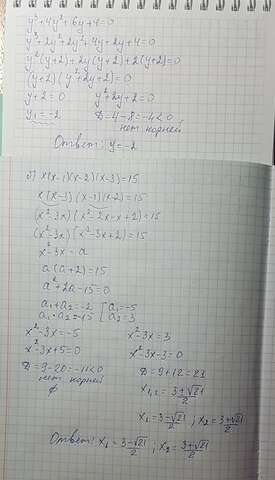 y³+4y²+6y+4=0
y³+2y²+2y²+4y+2y+4=0
y²(y+2)+2y(y+2)+2(y+2)=0
(y+2)(y²+2y+2)=0
y+2=0 y²+2y+2=0
y₁=-2 D=4-8=-4<0
нет корней
Ответ: y=-2
б) x(x-1)(x-2)(x-3)=15
x(x-3)(x-1)(x-2)=15
(x²-3x)(x²-2x-x+2)=15
(x²-3x)(x²-3x+2)=15
x²-3x=a
a(a+2)=15
a²+2a-15=0
a₁+a₂=-2 [a₁=-5
a₁·a₂=-15 [a₂=3
x²-3x=-5 x²-3x=3
x²-3x+5=0 x²-3x-3=0
D=9-20=-11<0 D=9+12=21
нет корней x₁,₂=3±√21/2
∅
x₁=3-√21/2; x₂=3+√21/2
Ответ: x₁=3-√21/2; x₂=3+√21/2